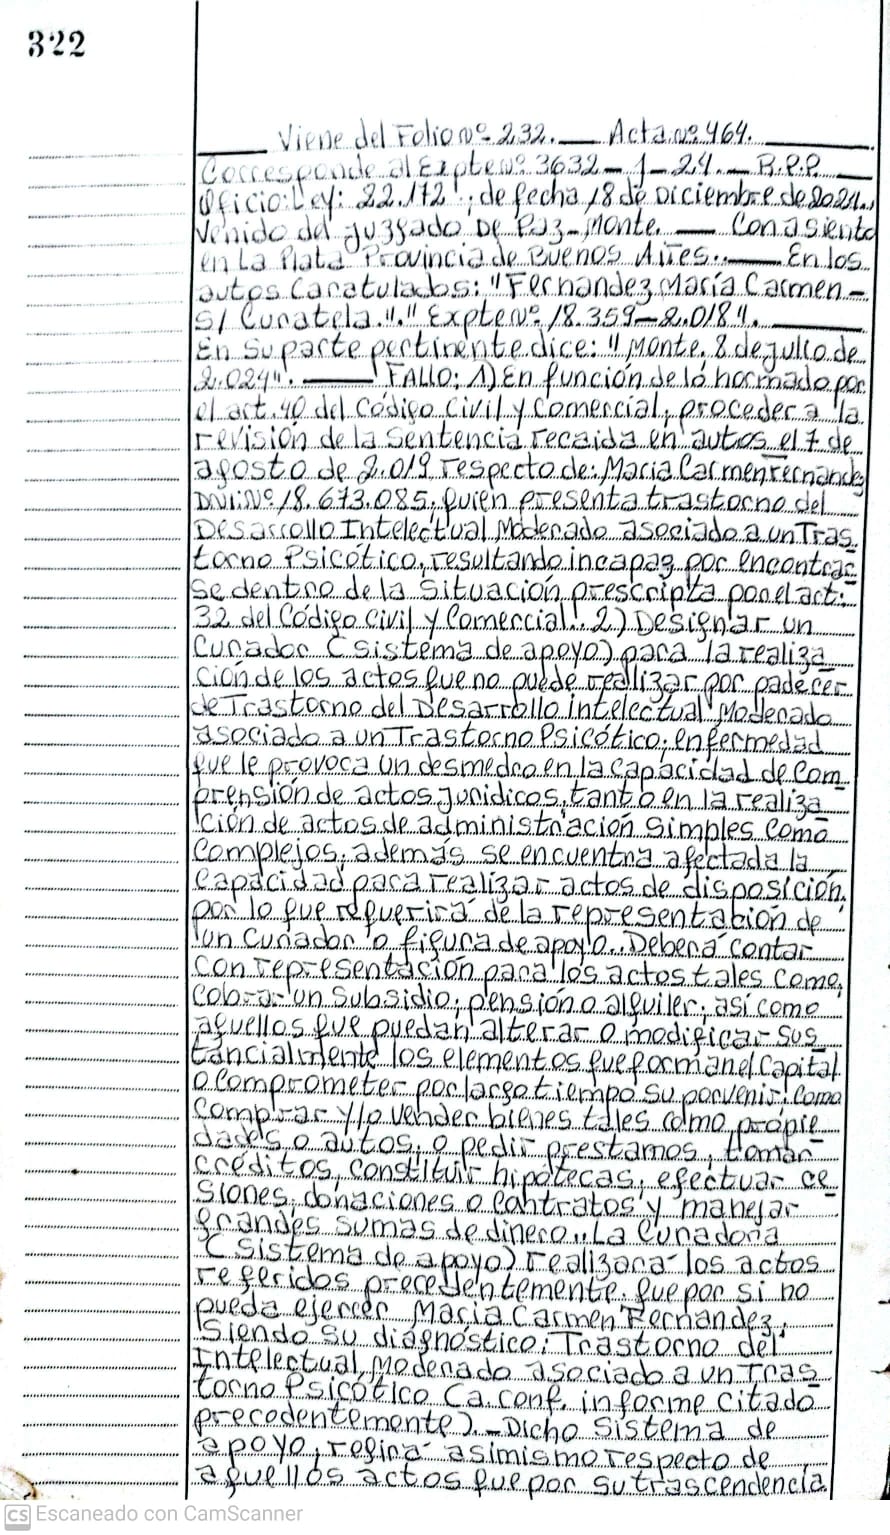 322
Viene del Folio nº 232. Acta nº 464.
Corresponde al Expte nº 3632-1-24. R.P.P.
Oficio: Ley: 22.172", de fecha 18 de Diciembre de 2024.
Venido del Juzgado De Paz-Monte. Con asiento
en La Plata Provincia de Buenos Aires. En los
autos Caratulados: "Fernandez María Carmen-
S/ Curatela."." Expte nº 18.359-2.018".
En su parte pertinente dice: " Monte, 8 de Julio de
2.024". FALLO: 1) En función de ló normado por
el art. 40 del Código Civil y Comercial, proceder a la
revisión de la Sentencia recaida en autos el 7 de
agosto de 2.019 respecto de: María Carmen Fernandez
DNI: Nº 18.673.085, quien presenta trastorno del
Desarrollo Intelectual Moderado asociado a un Tras
torno Psicótico, resultando incapaz por encontrar
se dentro de la situación prescripta por el art:
32 del Código Civil y Comercial.. 2) Designar un
Curador (Sistema de apoyo) para la realiza
ción de los actos que no puede realizar por padecer
de Trastorno del Desarrollo intelectual Moderado
asociado a un Trastorno Psicótico; enfermedad
que le provoca un desmedro en la capacidad de Com
prensión de actos juridicos, tanto en la realiza
ción de actos de administración simples como
complejos; además se encuentra afectada la
capacidad para realizar actos de disposición,
por lo que requerirá de la representación de
un curador o figura de apoyo.. Deberá contar
con representación para los actos tales como,
cobrar un subsidio, pensión o alquiler; así como
aquellos que puedan alterar o modificar sus
tancialmente los elementos que forman el capital
o comprometer por largo tiempo su porvenir; como
comprar y/o vender bienes tales como propie
dades o autos, o pedir prestamos, tomar
créditos, constituir hipotecas, efectuar ce
siones, donaciones o contratos y manejar
grandes sumas de dinero.. La Curadora
(Sistema de apoyo) realizará los actos
referidos precedentemente. que por si no
pueda ejercer Maria Carmen Fernandez,
siendo su diagnóstico: Trastorno del
Intelectual, Moderado asociado a un Tras
torno Psicótico (a. conf. informe citado
precedentemente).- Dicho sistema de
apoyo, regirá asimismo respecto de
aquellos actos que por su trascendencia
CS Escaneado con CamScanner